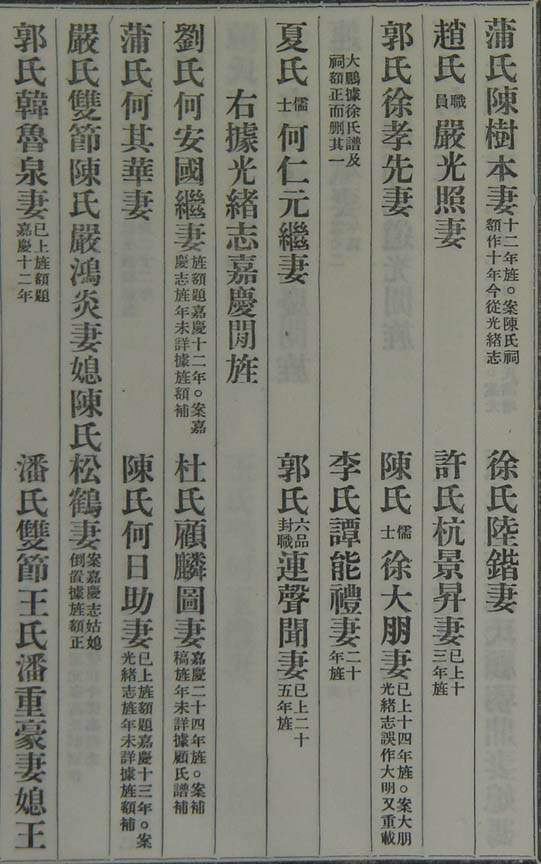 蒲氏陳樹本妻十二年旌。案陳氏祠額作十年今從光緒志　徐氏陸鍇妻
趙氏職員嚴光照妻　許氏杭景昇妻已上十三年旌
郭氏徐孝先妻　陳氏儒士徐大朋妻已上十四年旌。案大朋光緒志誤作大明又重載
大鵬據徐氏譜及祠額正而删其一　李氏譚能禮妻二十年旌
夏氏儒士何仁元繼妻　郭氏六品封職連聲聞妻已上二十五年旌
右據光緒志嘉慶閒旌
劉氏何安國繼妻旌額題嘉慶十二年。案嘉慶志旌年未詳據旌額補　杜氏顧麟圖妻嘉慶二十四年旌。案補稿旌年未詳據顧氏譜補
蒲氏何其華妻　陳氏何日助妻已上旌額題嘉慶十三年。案光緒志旌年未詳據旌額補
嚴氏雙節陳氏嚴鴻炎妻媳陳氏松鶴妻案嘉慶志姑媳倒置據旌額正
郭氏韓魯泉妻已上旌額題嘉慶十二年　潘氏雙節王氏潘重豪妻媳王